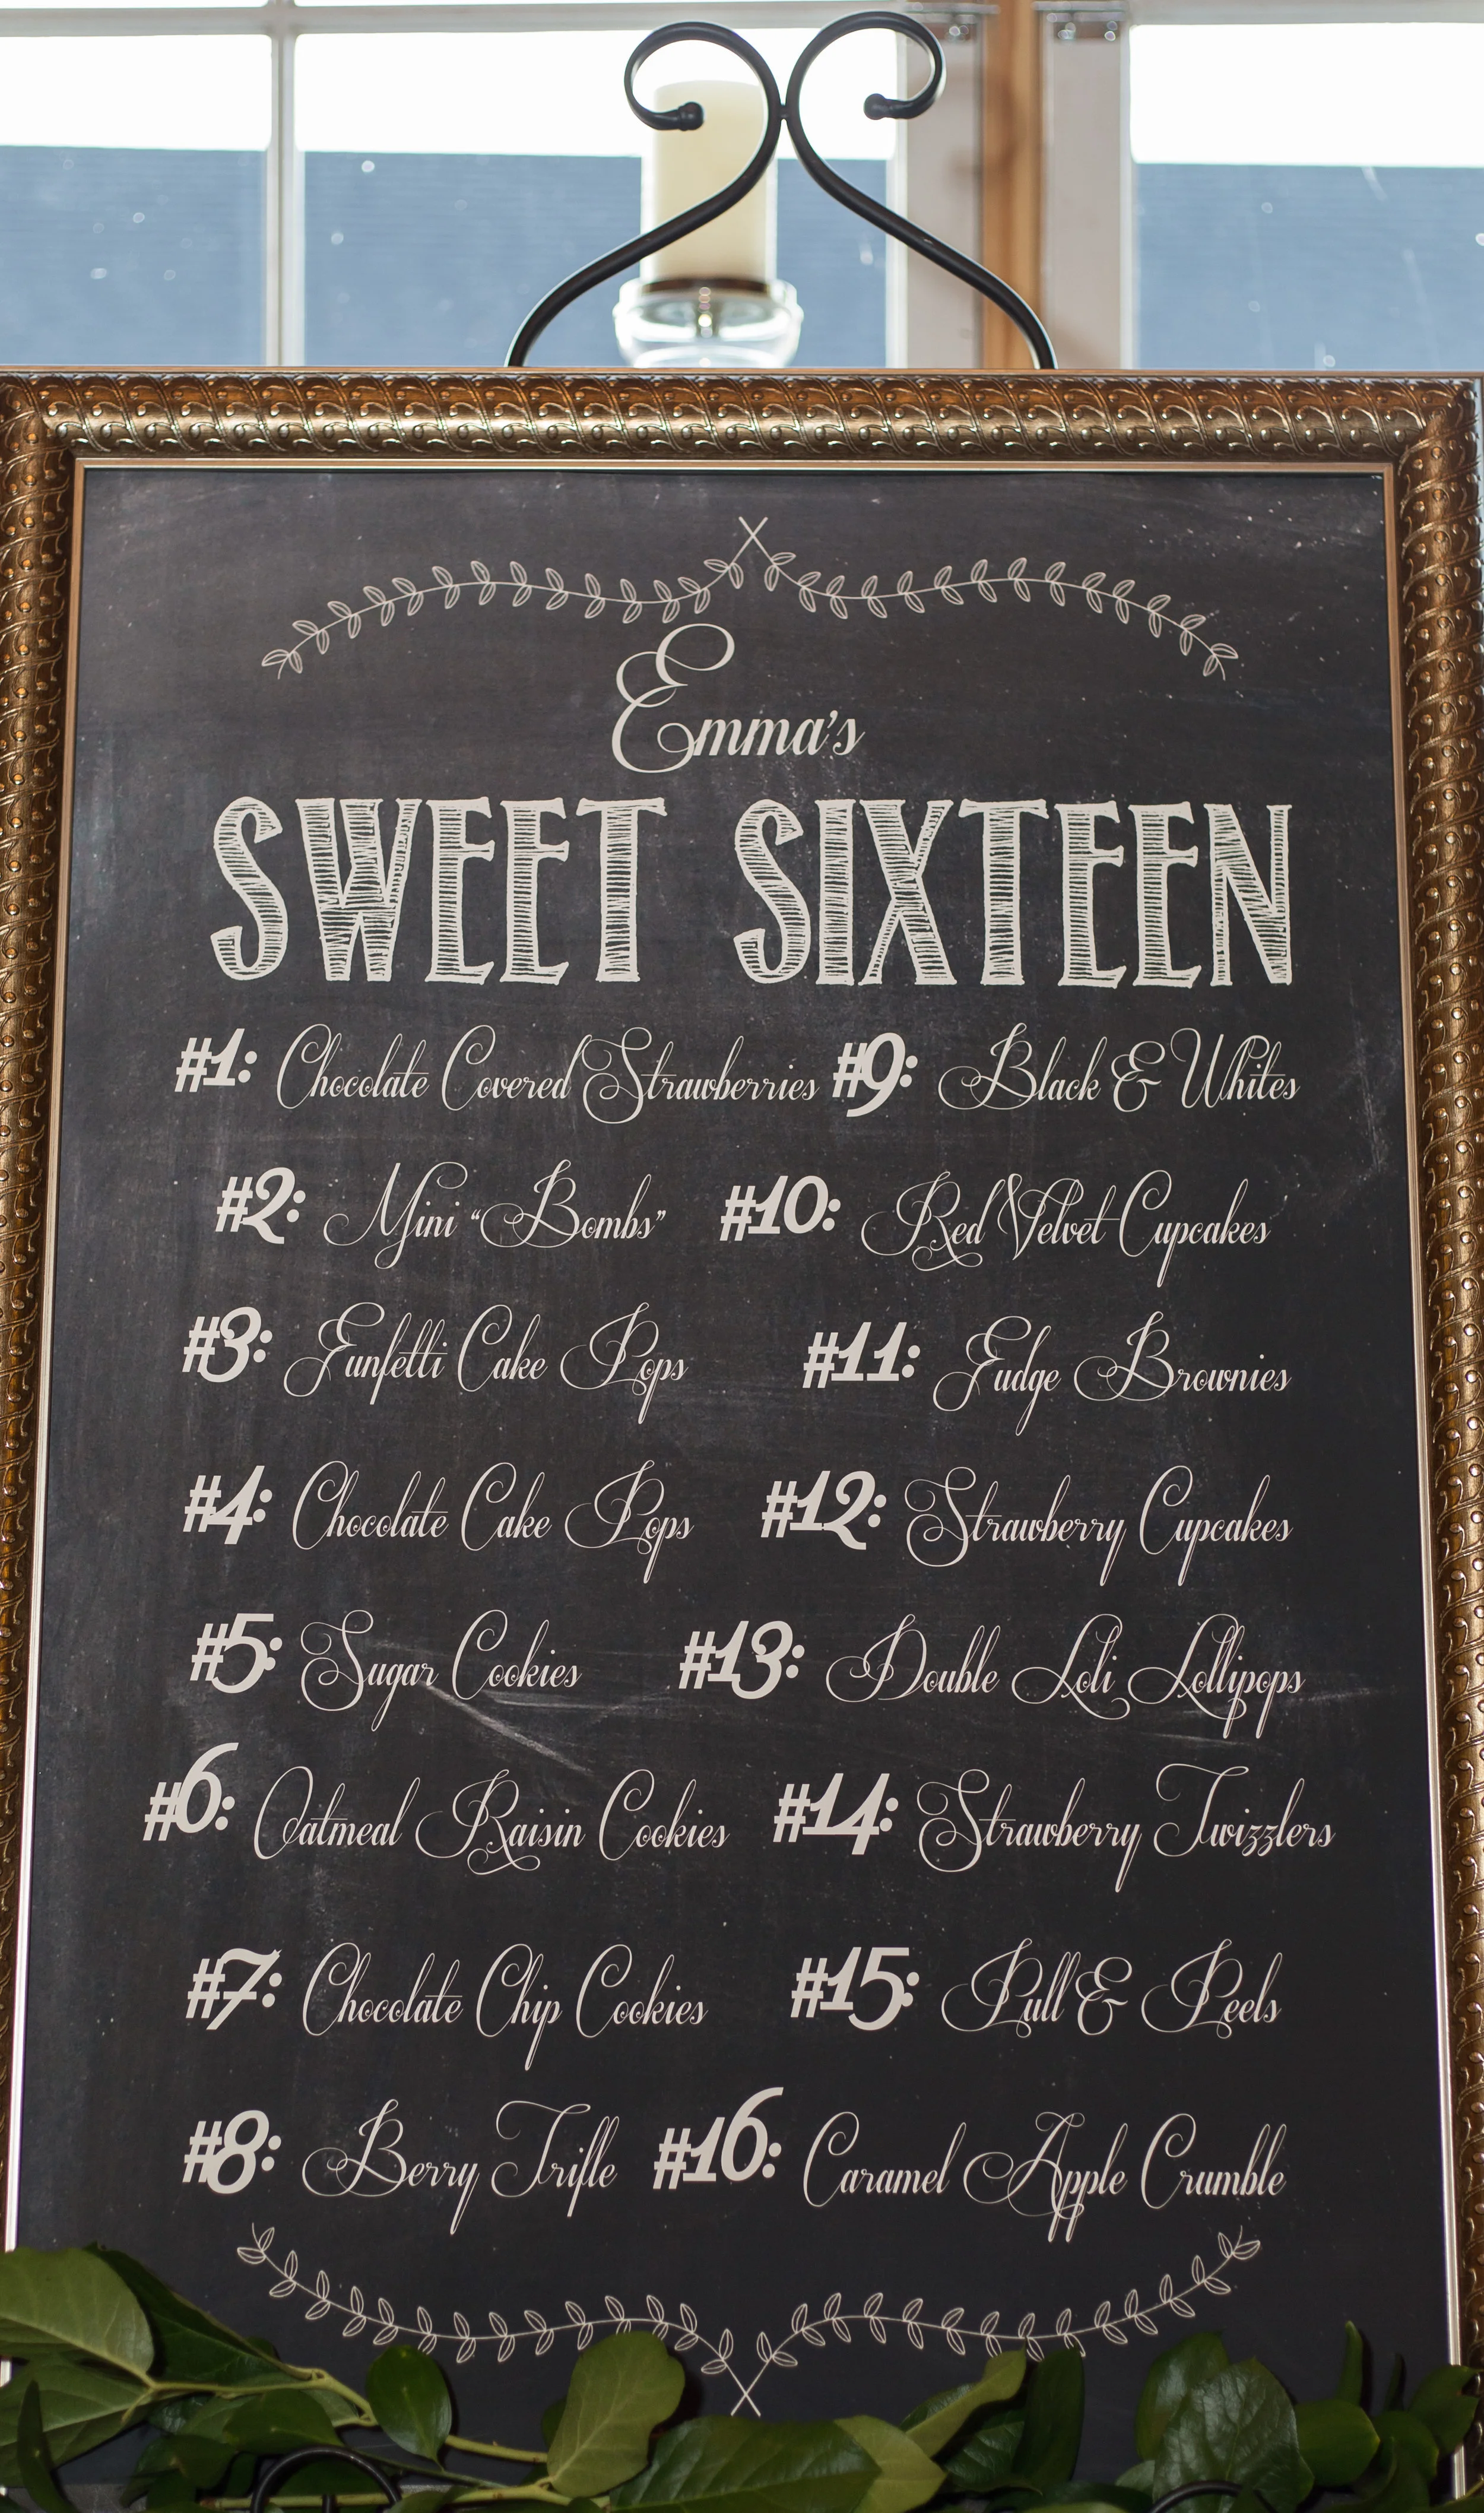 Emma's
SWEET SIXTEEN
#1: Chocolate Covered Strawberries #9: Black & Whites
#2: Mini “Bombs” #10: Red Velvet Cupcakes
#3: Funfetti Cake Pops #11: Fudge Brownies
#4: Chocolate Cake Pops #12: Strawberry Cupcakes
#5: Sugar Cookies #13: Double Loli Lollipops
#6: Oatmeal Raisin Cookies #14: Strawberry Twizzlers
#7: Chocolate Chip Cookies #15: Pull & Peels
#8: Berry Trifle #16: Caramel Apple Crumble